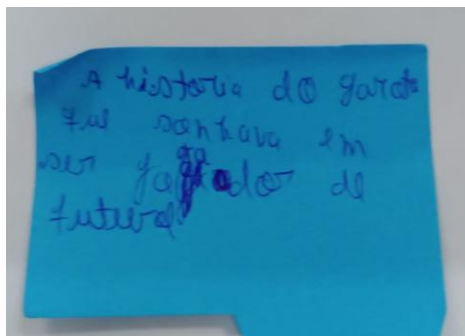 A historia do garoto
que sonhava em
ser jogador de
futebol